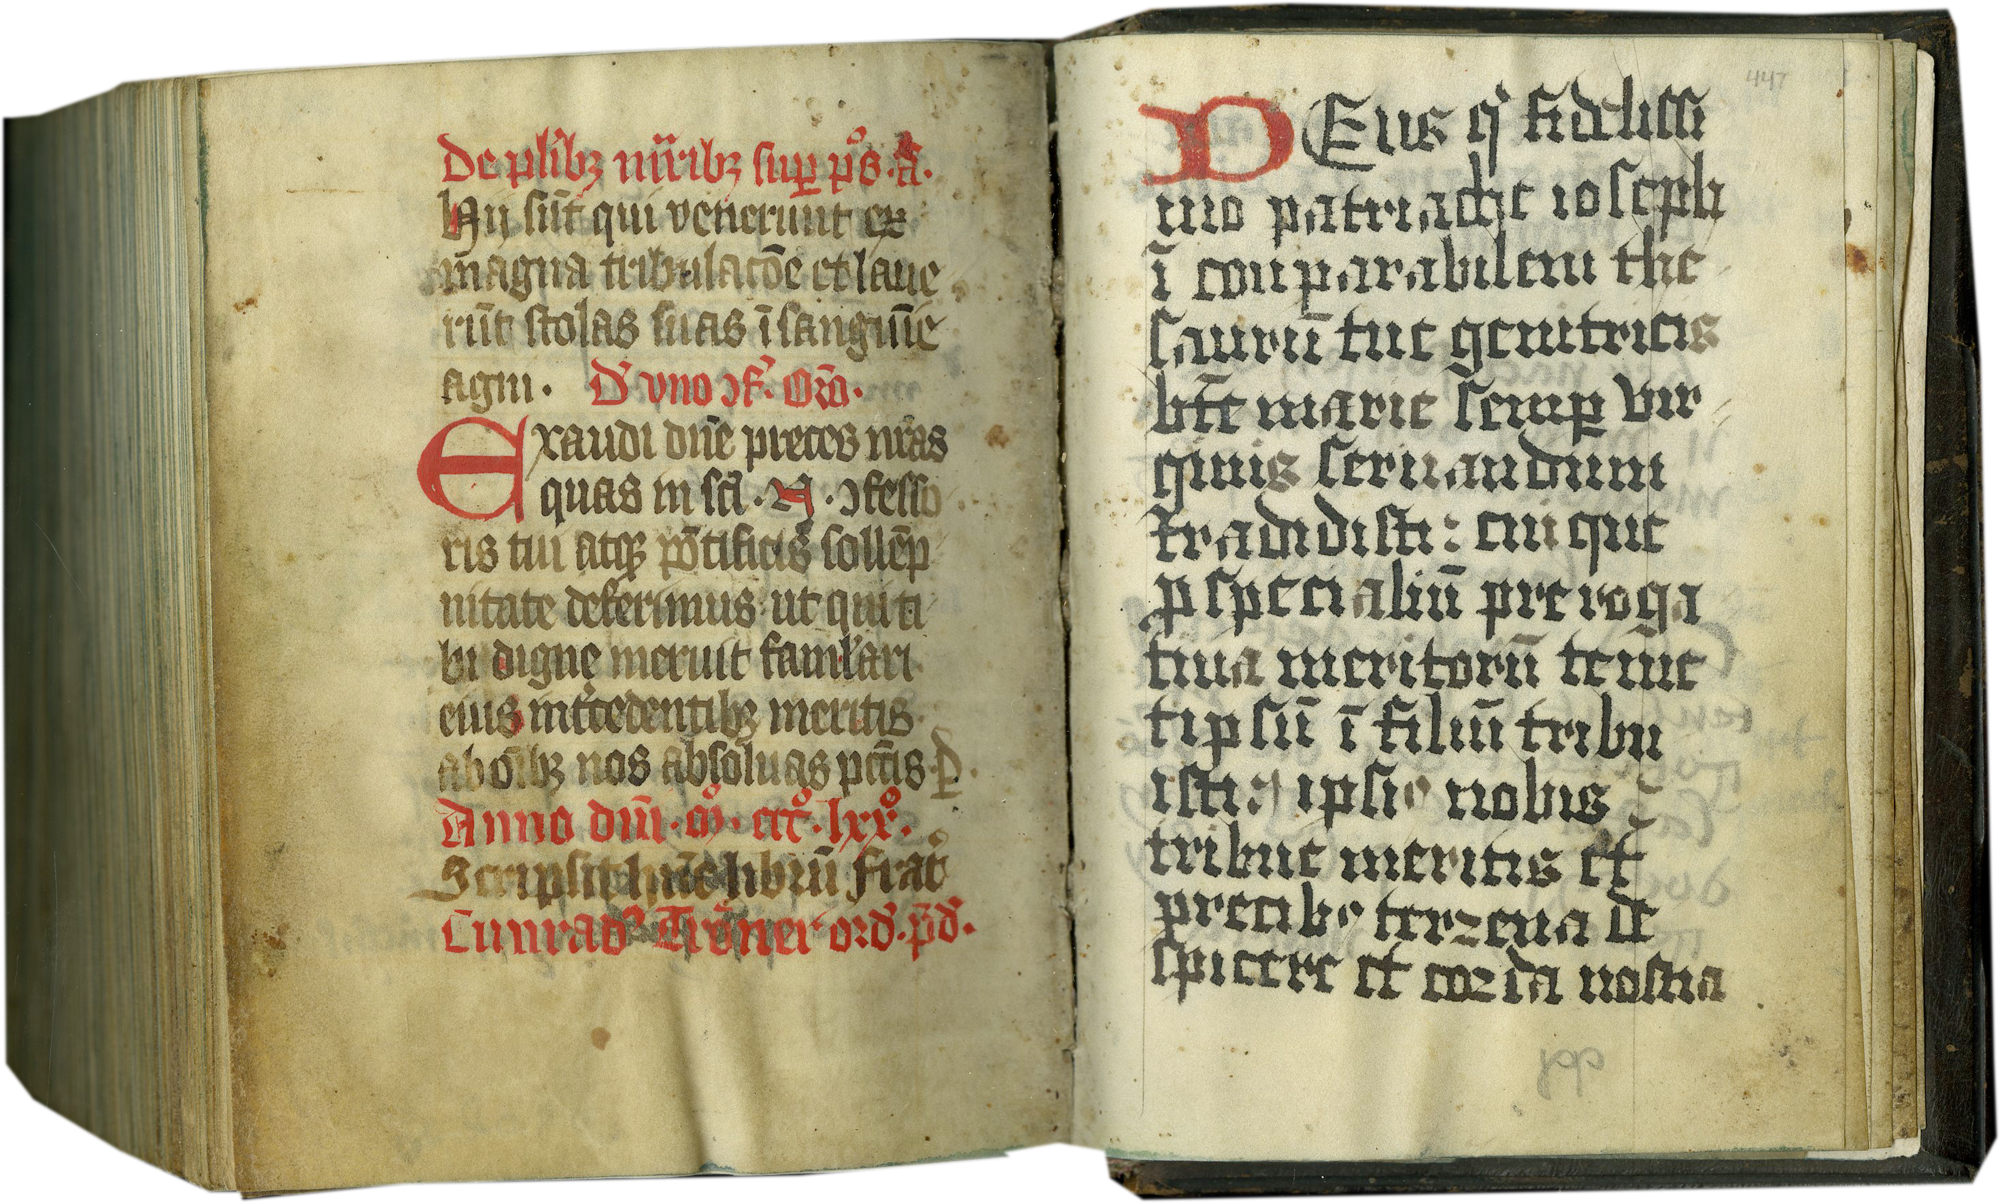 De pl'ibꝫ mr̄ibꝫ sup̲ pͦs · A ·
Hii sūt qui venerunt ex
magna tribulatōe et laue
rūt stolas suas ī sanguīe
agni · D' vno ↄf'. Or̄o.
Exaudi dn̄e preces nr̄as
quas in sc̄i · N · ↄfesso
ris tui atqꝫ pōtificis sollēp
nitate deferimus · ut qui ti
bi digne meruit famlari
eius int'cedentibꝫ meritis
ab oībꝫ nos absoluas pctīs · P̲ .
Anno dn̄i · mͦ · ccͦc · lxxͦ .
Scripsit hūc librū frat'
Cunrad9 ord' · p̄d' ·
447
DEus q' fidelissi
mo patriache ioseph
ī conparabilem the
saurū tue genitricis
bt̄e marie semp̲ vir
ginis seruandum
tradidisti : cui que
p̲ specialiū preroga
tiua meritorū teme
tip̲sū ī filiū tribu
isti : ipsi9 nobis
tribue meritis et
precib9 terrena de
spicere et corda nostra